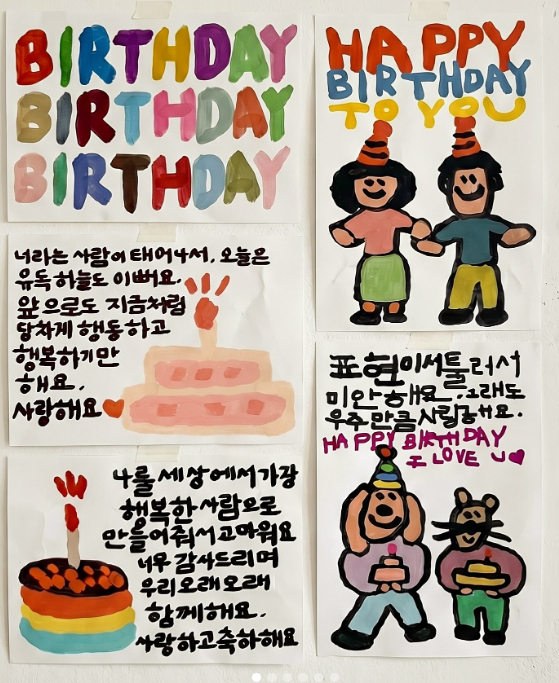 BIRTHDAY
BIRTHDAY
BIRTHDAY
HAPPY
BIRTHDAY
TO YOU
너라는 사람이 태어나서, 오늘은
유독 하늘도 이뻐요.
앞으로도 지금처럼
당차게 행동하고
행복하기만
해요.
사랑해요
표현이 서툴러서
미안해요. 그래도
우주만큼 사랑해요.
HAPPY BIRTHDAY
I LOVE U
나를 세상에서 가장
행복한 사람으로
만들어줘서 고마워요
너무 감사드리며
우리 오래오래
함께해요.
사랑하고 축하해요